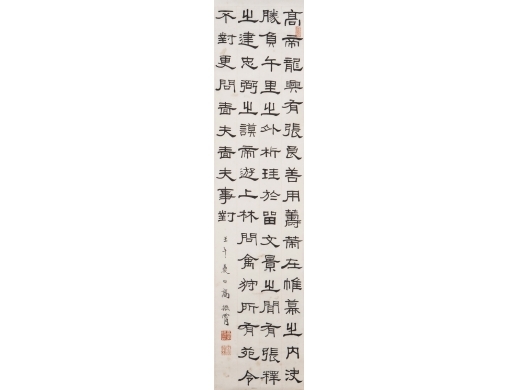 高帝龍興有張良善用籌策在帷幕之內決
勝負千里之外析珪於留文景之間有張釋
之建忠弼之謨帝遊上林問禽狩所有苑令
不對更問嗇夫嗇夫事對
壬午夏日高振霄